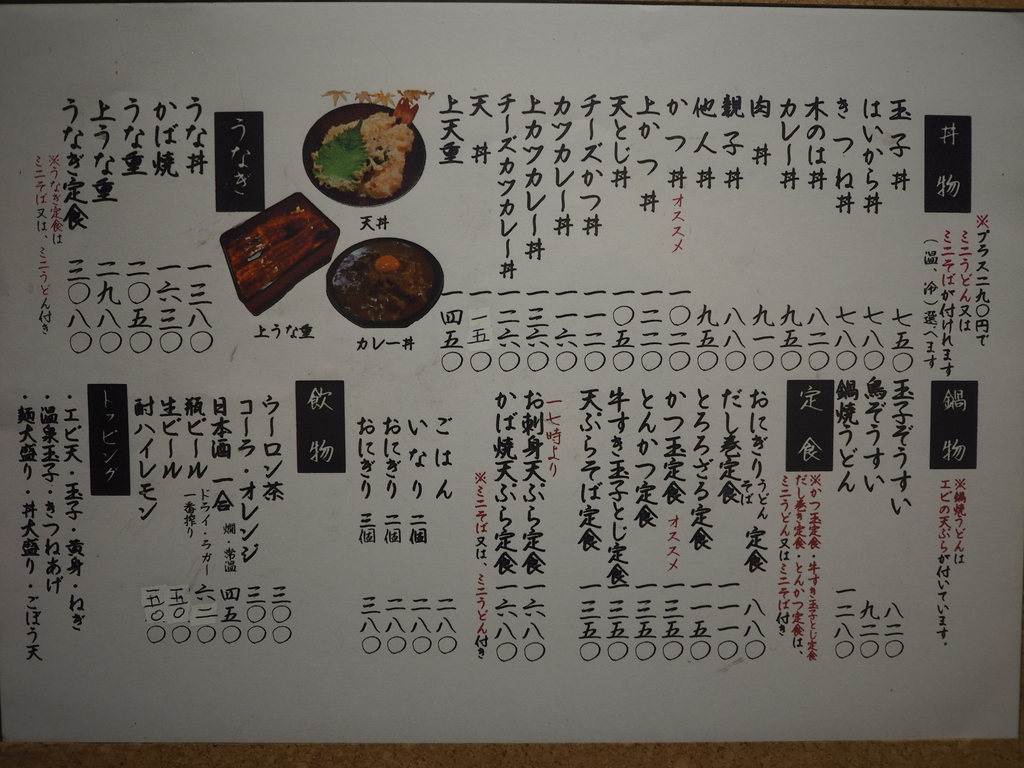 丼物
※プラス二九〇円で
ミニうどん又は
ミニそばが付けれます
(温、冷)選べます
玉子丼 七五〇
はいから丼 七八〇
きつね丼 七八〇
木のは丼 八二〇
カレー丼 九五〇
肉丼 九一〇
親子丼 八八〇
他人丼 九五〇
かつ丼 オススメ 一〇二〇
上かつ丼 一二二〇
天とじ丼 一〇五〇
チーズかつ丼 一一二〇
カツカレー丼 一一六〇
上カツカレー丼 一三六〇
チーズカツカレー丼 一二六〇
天丼 一一五〇
上天重 一四五〇
天丼
カレー丼
上うな重
うなぎ
うな丼 一三八〇
かば焼 一六三〇
うな重 二〇五〇
上うな重 二九八〇
うなぎ定食 三〇八〇
※うなぎ定食は
ミニそば又は、ミニうどん付き
鍋物
※鍋焼うどんは
エビの天ぷらが付いています。
玉子ぞうすい 八二〇
鳥ぞうすい 九二〇
鍋焼うどん 一二八〇
定食
※かつ玉定食・牛すき玉子とじ定食
だし巻き定食・とんかつ定食は、
ミニうどん又はミニそば付き
おにぎり うどん そば 定食 八八〇
だし巻定食 一一一〇
とろろざる定食 一一五〇
かつ玉定食 オススメ 一三五〇
とんかつ定食 一三五〇
牛すき玉子とじ定食 一三五〇
天ぷらそば定食 一三五〇
一七時より
お刺身天ぷら定食 一六八〇
かば焼天ぷら定食 一六八〇
※ミニそば又は、ミニうどん付き
ごはん 二八〇
いなり 二個 二八〇
おにぎり 二個 二八〇
おにぎり 三個 三八〇
飲物
ウーロン茶 三〇〇
コーラ・オレンジ 三〇〇
日本酒 一合 燗・常温 四五〇
瓶ビール ドライ・ラガー 六二〇
生ビール 一番搾り
酎ハイレモン
トッピング
・エビ天・玉子・黄身・ねぎ
・温泉玉子・きつねあげ
・麺大盛り・丼大盛り・ごぼう天